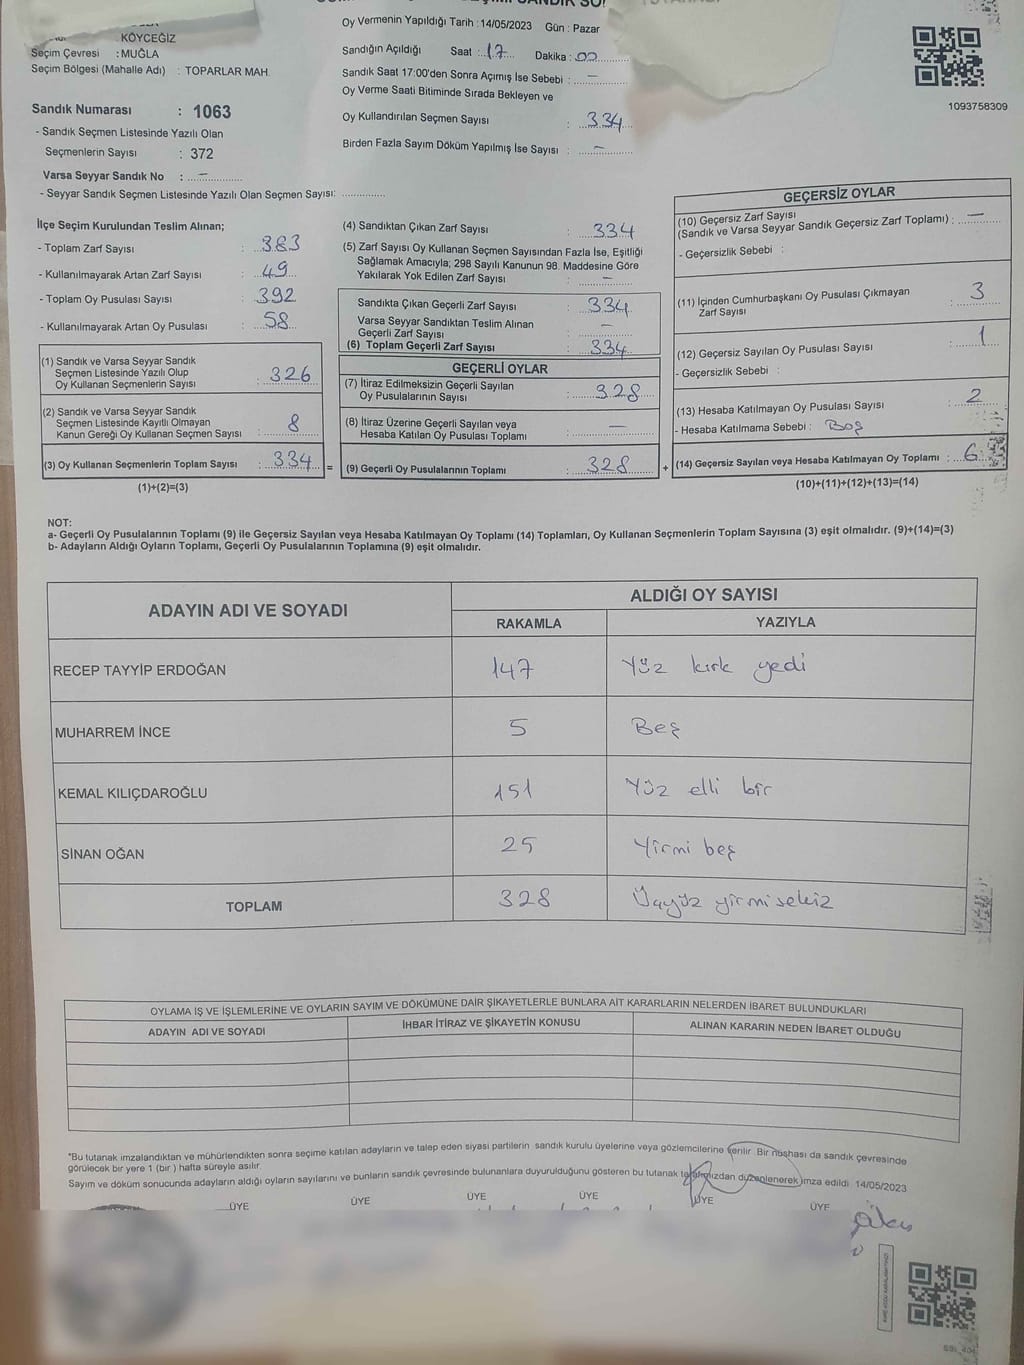 KÖYCEĞİZ
Seçim Çevresi : MUĞLA
Seçim Bölgesi (Mahalle Adı) : TOPARLAR MAH.
Sandık Numarası : 1063
- Sandık Seçmen Listesinde Yazılı Olan
Seçmenlerin Sayısı : 372
Varsa Seyyar Sandık No : –
- Seyyar Sandık Seçmen Listesinde Yazılı Olan Seçmen Sayısı:
Oy Vermenin Yapıldığı Tarih : 14/05/2023 Gün : Pazar
Sandığın Açıldığı Saat : 17 Dakika : 00
Sandık Saat 17:00'den Sonra Açımış İse Sebebi : –
Oy Verme Saati Bitiminde Sırada Bekleyen ve
Oy Kullandırılan Seçmen Sayısı : 334
Birden Fazla Sayım Döküm Yapılmış İse Sayısı : –
1093758309
İlçe Seçim Kurulundan Teslim Alınan;
- Toplam Zarf Sayısı : 383
- Kullanılmayarak Artan Zarf Sayısı : 49
- Toplam Oy Pusulası Sayısı : 392
- Kullanılmayarak Artan Oy Pusulası : 58
(1) Sandık ve Varsa Seyyar Sandık
Seçmen Listesinde Yazılı Olup
Oy Kullanan Seçmenlerin Sayısı : 326
(2) Sandık ve Varsa Seyyar Sandık
Seçmen Listesinde Kayıtlı Olmayan
Kanun Gereği Oy Kullanan Seçmen Sayısı : 8
(3) Oy Kullanan Seçmenlerin Toplam Sayısı : 334 =
(1)+(2)=(3)
(4) Sandıktan Çıkan Zarf Sayısı : 334
(5) Zarf Sayısı Oy Kullanan Seçmen Sayısından Fazla İse, Eşitliği
Sağlamak Amacıyla; 298 Sayılı Kanunun 98. Maddesine Göre
Yakılarak Yok Edilen Zarf Sayısı : –
Sandıkta Çıkan Geçerli Zarf Sayısı : 334
Varsa Seyyar Sandıktan Teslim Alınan
Geçerli Zarf Sayısı : –
(6) Toplam Geçerli Zarf Sayısı : 334
GEÇERLİ OYLAR
(7) İtiraz Edilmeksizin Geçerli Sayılan
Oy Pusulalarının Sayısı : 328
(8) İtiraz Üzerine Geçerli Sayılan veya
Hesaba Katılan Oy Pusulası Toplamı : –
(9) Geçerli Oy Pusulalarının Toplamı : 328 +
GEÇERSİZ OYLAR
(10) Geçersiz Zarf Sayısı
(Sandık ve Varsa Seyyar Sandık Geçersiz Zarf Toplamı) : –
- Geçersizlik Sebebi :
(11) İçinden Cumhurbaşkanı Oy Pusulası Çıkmayan
Zarf Sayısı : 3
(12) Geçersiz Sayılan Oy Pusulası Sayısı : 1
- Geçersizlik Sebebi :
(13) Hesaba Katılmayan Oy Pusulası Sayısı : 2
- Hesaba Katılmama Sebebi : Boş
(14) Geçersiz Sayılan veya Hesaba Katılmayan Oy Toplamı : 6
(10)+(11)+(12)+(13)=(14)
NOT:
a- Geçerli Oy Pusulalarının Toplamı (9) ile Geçersiz Sayılan veya Hesaba Katılmayan Oy Toplamı (14) Toplamları, Oy Kullanan Seçmenlerin Toplam Sayısına (3) eşit olmalıdır. (9)+(14)=(3)
b- Adayların Aldığı Oyların Toplamı, Geçerli Oy Pusulalarının Toplamına (9) eşit olmalıdır.
ADAYIN ADI VE SOYADI ALDIĞI OY SAYISI
RAKAMLA YAZIYLA
RECEP TAYYİP ERDOĞAN 147 Yüz kırk yedi
MUHARREM İNCE 5 Beş
KEMAL KILIÇDAROĞLU 151 Yüz elli bir
SİNAN OĞAN 25 Yirmi beş
TOPLAM 328 Üçyüz yirmi sekiz
OYLAMA İŞ VE İŞLEMLERİNE VE OYLARIN SAYIM VE DÖKÜMÜNE DAİR ŞİKAYETLERLE BUNLARA AİT KARARLARIN NELERDEN İBARET BULUNDUKLARI
ADAYIN ADI VE SOYADI İHBAR İTİRAZ VE ŞİKAYETİN KONUSU ALINAN KARARIN NEDEN İBARET OLDUĞU
*Bu tutanak imzalandıktan ve mühürlendikten sonra seçime katılan adayların ve talep eden siyasi partilerin sandık kurulu üyelerine veya gözlemcilerine verilir. Bir nüshası da sandık çevresinde
görülecek bir yere 1 (bir ) hafta süreyle asılır.
Sayım ve döküm sonucunda adayların aldığı oyların sayılarını ve bunların sandık çevresinde bulunanlara duyurulduğunu gösteren bu tutanak tarafımızdan düzenlenerek imza edildi 14/05/2023
ÜYE ÜYE ÜYE ÜYE ÜYE ÜYE